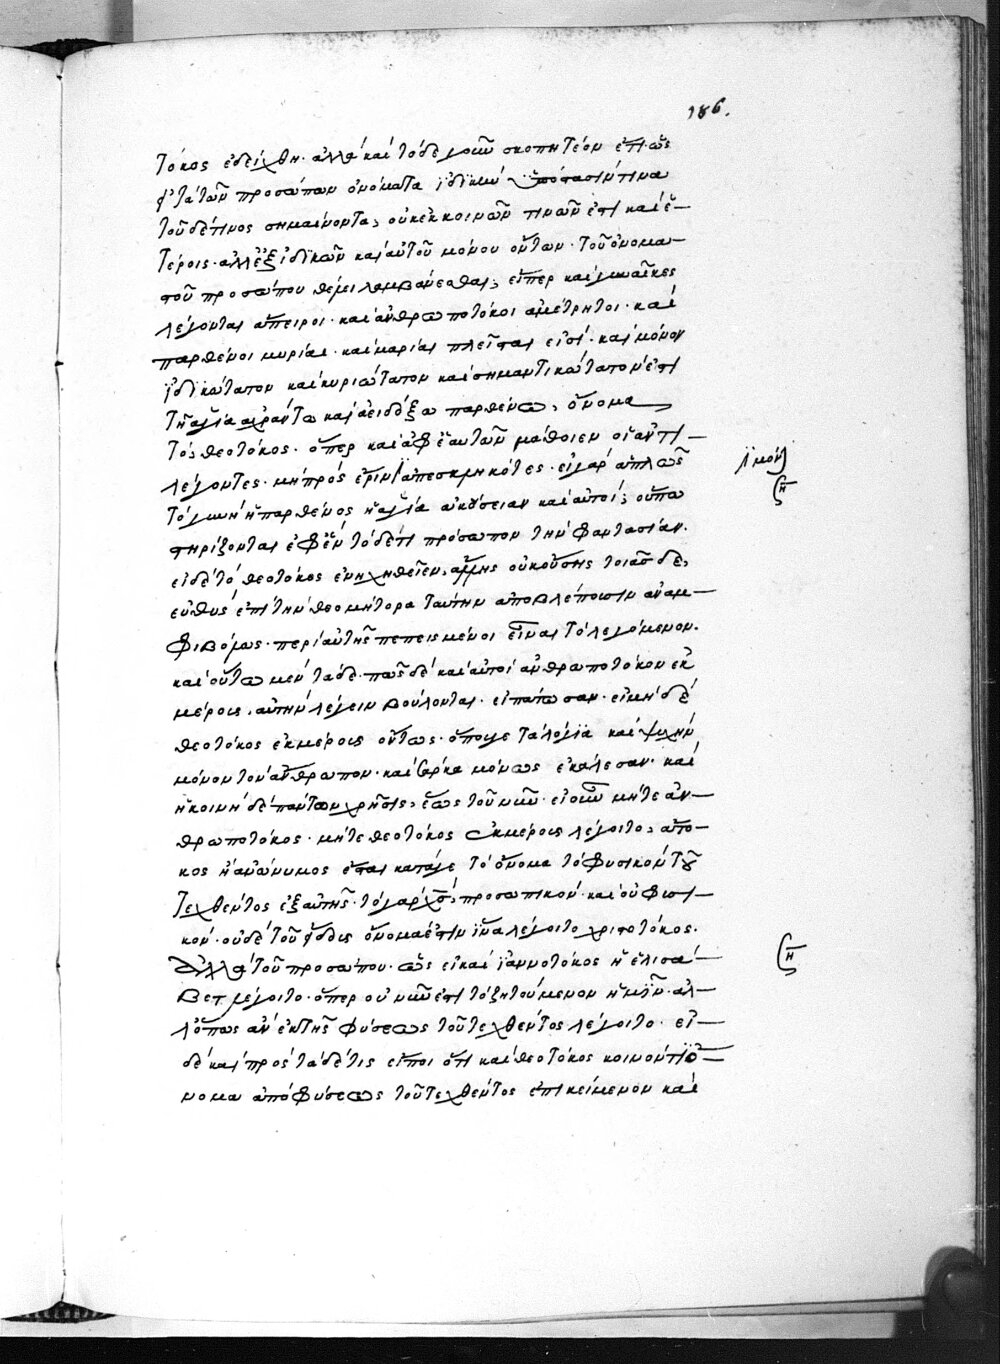 186.
τόκος ἐδείχθη· ἀλλὰ καὶ τόδε γοῦν σκοπητέον ἐστὶ ὡς
τὰ τῶν προσώπων ὀνόματα ἰδικὴν ὑπόστασιν τινα
τοῦδέ τινος σημαίνοντα, οὐκ ἐκ κοινῶν τινων ἐστὶ καὶ ἑ-
τέροις· ἀλλ' ἐξ ἰδικῶν καὶ αὐτοῦ μόνου ὄντων· τοῦ ὀνομα-
στοῦ προσώπου θέμις λαμβάνεσθαι, εἴπερ καὶ γυναῖκες
λέγονται ἄπειροι· καὶ ἀνθρωποτόκοι ἀμέτρητοι· καὶ
παρθένοι μυρίαι· καὶ μαρίαι πλεῖσται εἰσί· καὶ μόνον
ἰδικώτατον καὶ κυριώτατον καὶ σημαντικώτατον ἐστὶ
τῇ ἁγία ἀχράντω καὶ ἀειδόξω παρθένω, ὄνομα
τὸ, θεοτόκος· ὅπερ καὶ ἀφ' ἑαυτῶν μάθοιεν οἱ ἀντι-
λέγοντες· μὴ πρὸς ἔριν ἀπεσκληκότες· εἰ γὰρ ἁπλῶς
τὸ γυνὴ ἢ παρθένος ἢ ἁγία ἀκούσειαν καὶ αὐτοί; οὔπω
στηρίζονται ἐφ' ἓν τόδε τι πρόσωπον τὴν φαντασίαν·
εἰ δὲ τὸ θεοτόκος ἐνηχηθεῖεν, ἄλλης οὐκ οὔσης τοιᾶσδε,
εὐθὺς ἐπὶ τὴν θεομήτορα ταύτην ἀποβλέπουσιν ἀναμ-
φιβόλως· περὶ αὐτῆς πεπεισμένοι εἶναι τὸ λεγόμενον·
καὶ οὕτω μὲν τάδε· πῶς δὲ καὶ αὐτοὶ ἀνθρωποτόκον ἐκ
μέρους, αὐτὴν λέγειν βούλονται· εἰπάτωσαν· εἰ μὴ δὲ
θεοτόκος ἐκ μέρους ὄντως· ὅπου γε τὰ λόγια καὶ ψυχὴν
μόνον τὸν ἄνθρωπον· καὶ σάρκα μόνως ἐκάλεσαν· καὶ
ἡ κοινὴ δὲ πάντων χρῆσις, ἕως τοῦ νῦν· εἰ οὖν μήτε ἀν-
θρωποτόκος· μήτε θεοτόκος ἐκ μέρους λέγοιτο, ἄτο-
κος ἢ ἀνώνυμος ἔσται κατά γε τὸ ὄνομα τὸ φυσικὸν τοῦ
τεχθέντος ἐξ αὐτῆς· τὸ γὰρ χς, προσωπικόν· καὶ οὐ φυσι-
κόν· οὐδὲ τοῦ εἴδους ὄνομα ἐστιν ἵνα λέγοιτο χριστοτόκος·
Ἀλλὰ τοῦ προσώπου· ὡς εἰ καὶ ἰαννοτόκος ἡ ἐλισά-
βετ λέγοιτο· ὅπερ οὐ νῦν ἐστὶ τὸ ζητούμενον ἡμῖν· ἀλ-
λ' ὅπως ἂν ἐκ τῆς φύσεως τοῦ τεχθέντος λέγοιτο· εἰ
δὲ καὶ πρὸς τάδε τις εἴποι ὅτι καὶ θεοτόκος κοινόν τι ὄ-
νομα ἀπὸ φύσεως τοῦ τεχθέντος ἐπικείμενον καὶ